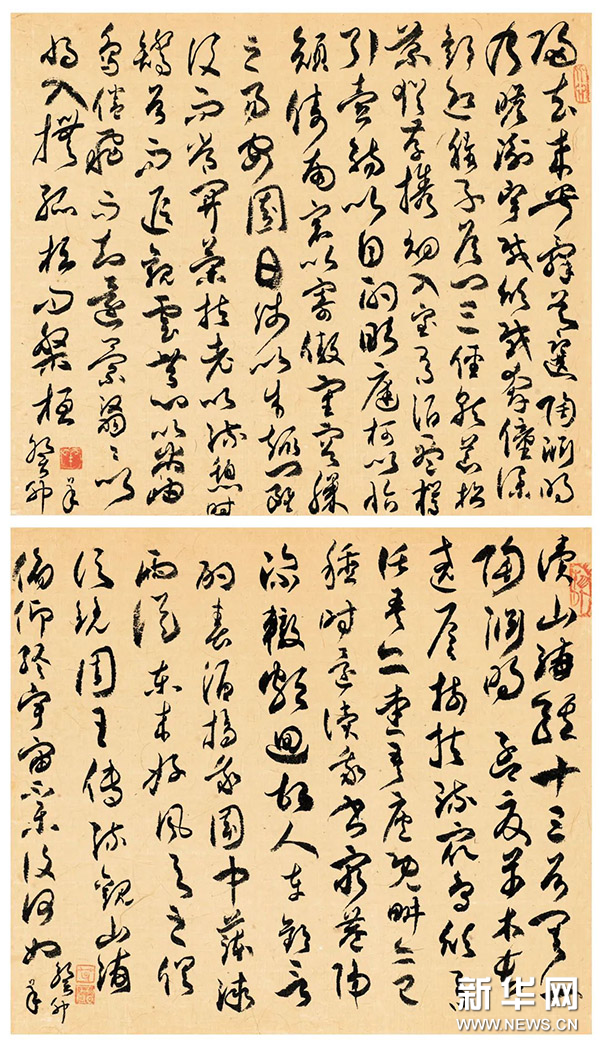 歸去來兮辭節選 陶淵明
乃瞻衡宇載欣載奔僮僕
歡迎稚子候門三徑就荒松
菊猶存攜幼入室有酒盈樽
引壺觴以自酌眄庭柯以怡
顏倚南窗以寄傲審容膝
之易安園日涉以成趣門雖
設而常關策扶老以流憩時
矯首而遐觀雲無心以出岫
鳥倦飛而知還景翳〻以
將入撫孤松而盤桓 癸卯
讀山海經十三首其一
陶淵明 孟夏草木長
遶屋樹扶疏衆鳥欣有
託吾亦愛吾廬既耕亦已
種時還讀我書窮巷隔
深轍頗迴故人車歡言
酌春酒摘我園中蔬微
雨從東來好風與之俱
汎覽周王傳流觀山海
俯仰終宇宙不樂復何如 癸卯
新华网
WWW.NEWS.CN